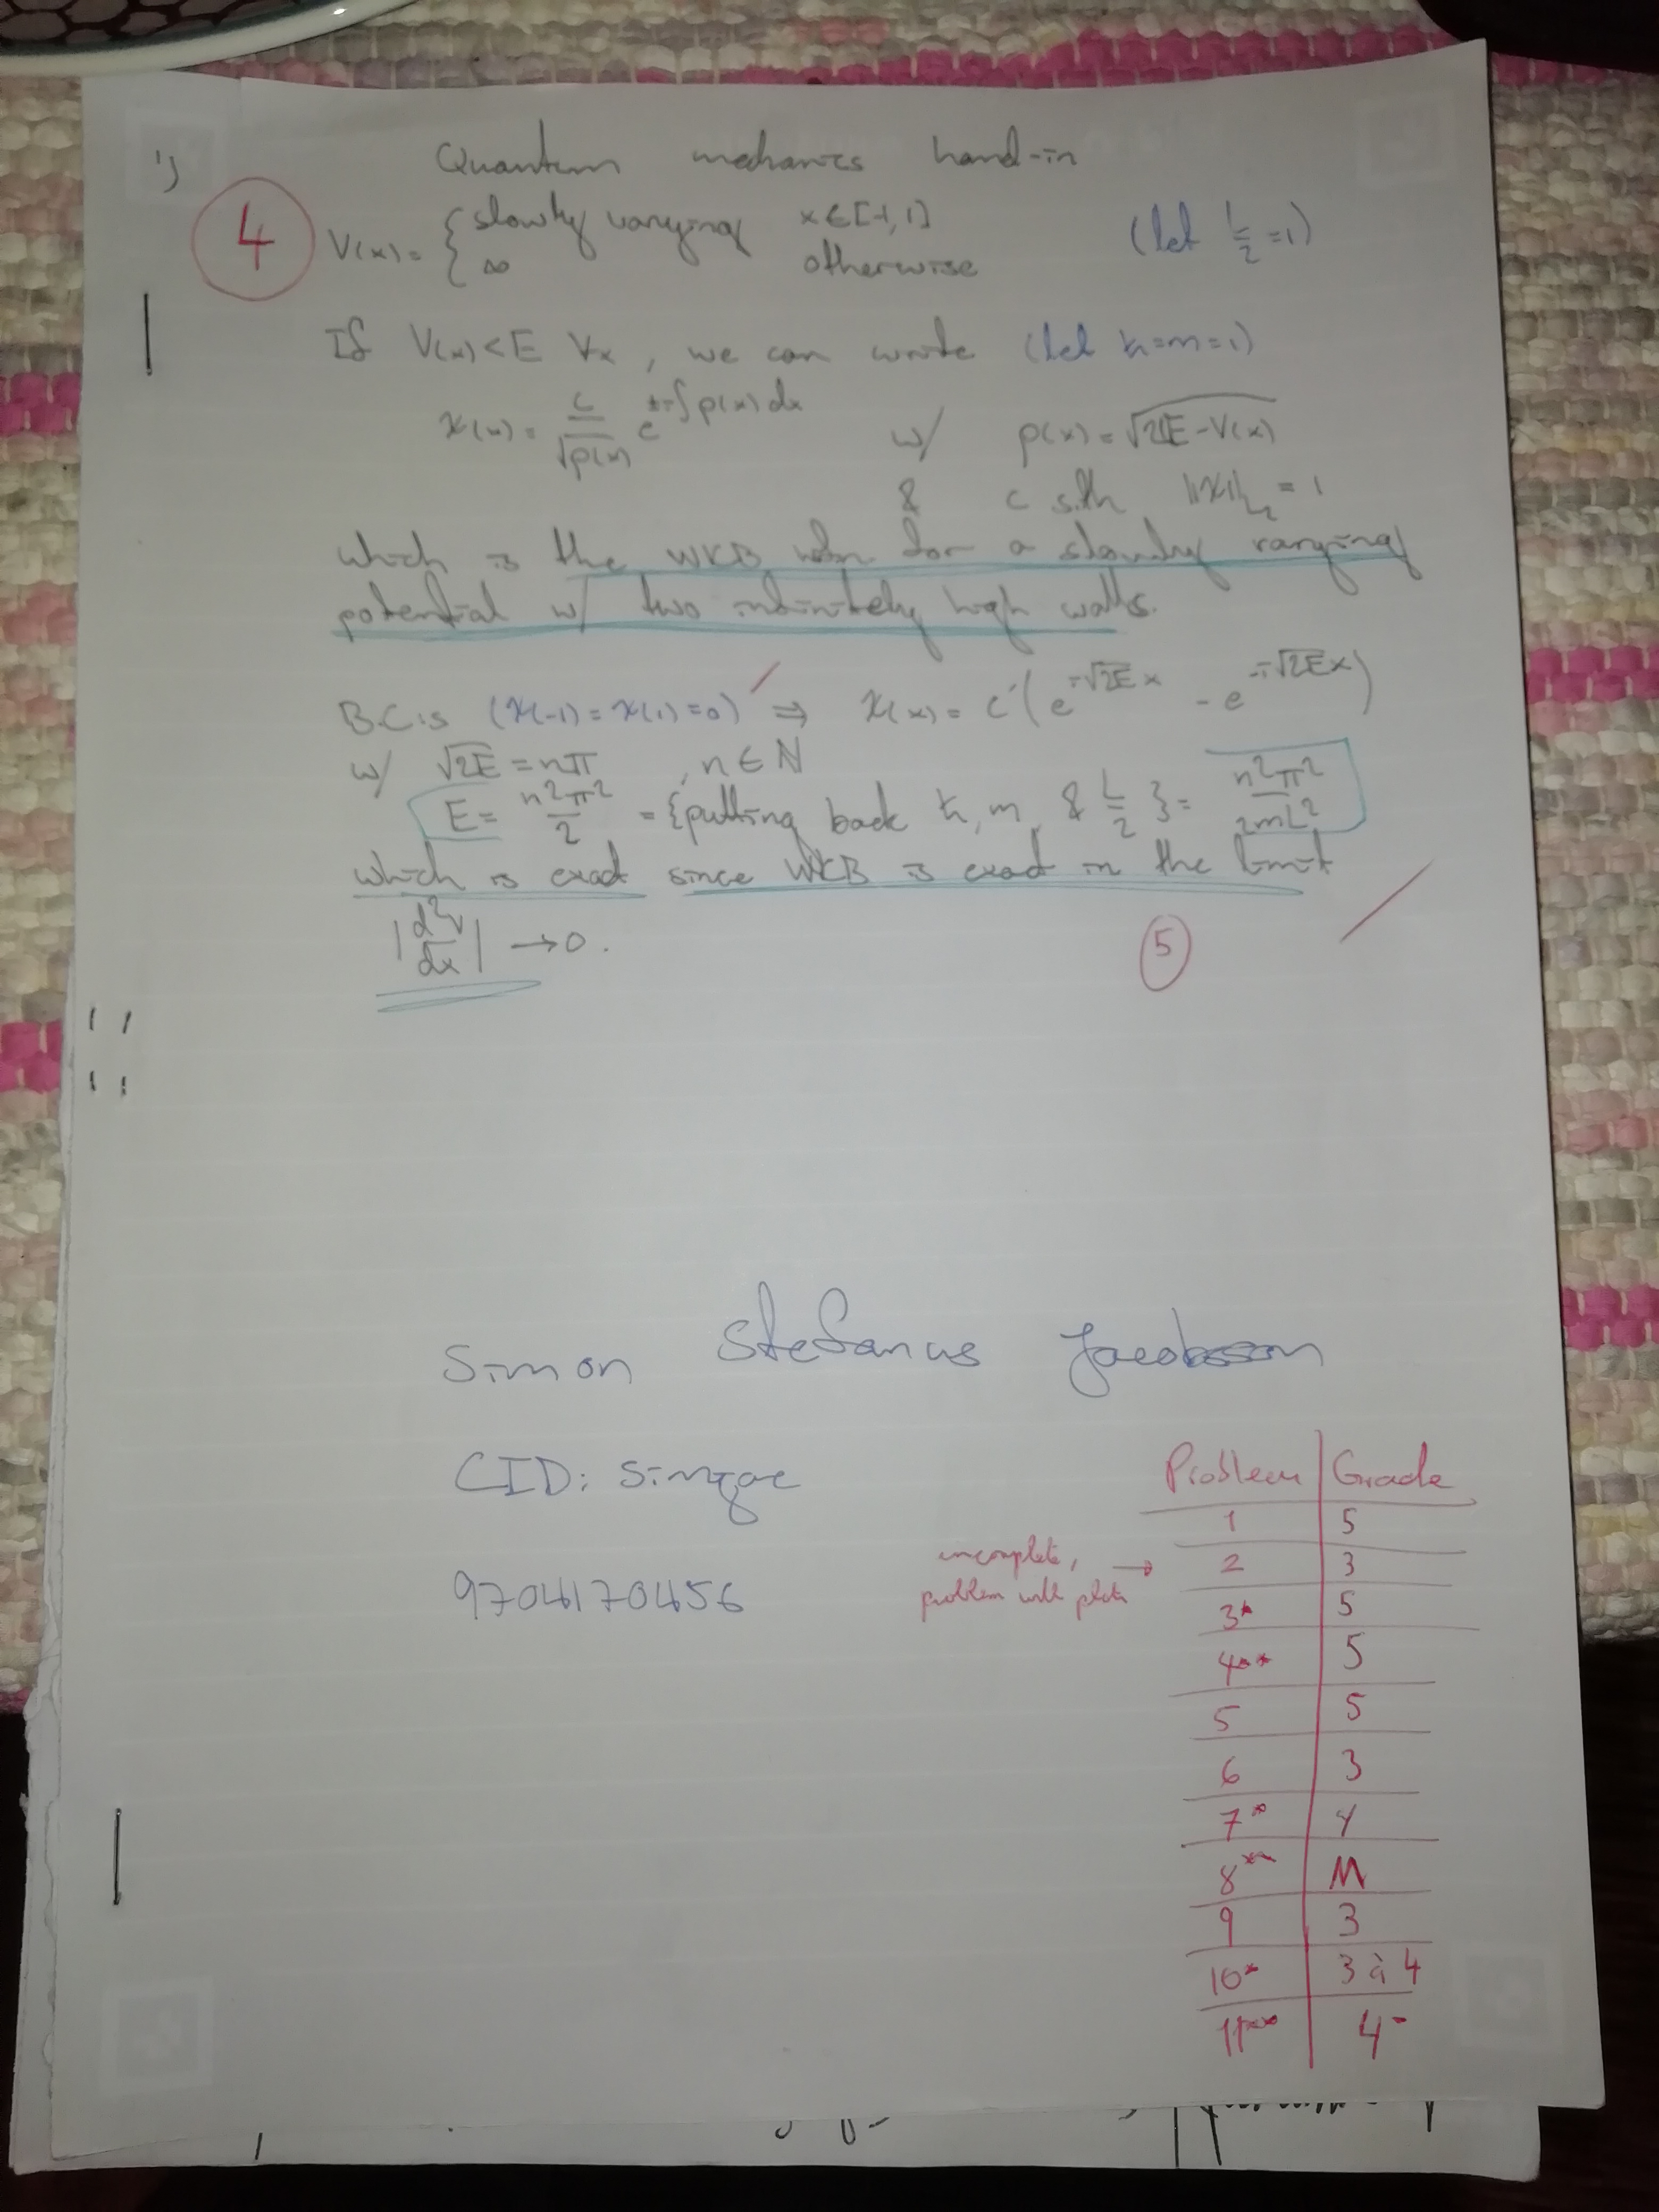 1)
Quantum mechanics hand-in
4
V(x) = { slowly varying x∈[-1,1] (let L/2 = 1)
∞ otherwise
If V(x)<E ∀x, we can write (let ħ=m=1)
χ(x) = c/√p(x) e^±i∫p(x)dx w/ p(x) = √2(E-V(x)
& c s.th ||χ||L2 = 1
which is the WKB for a slowly varying
potential w/ two infinitely high walls.
B.C:s (χ(-1) = χ(1) = 0) ⇒ χ(x) = c'(e^i√2E x - e^-i√2E x)
w/ √2E = nπ , n ∈ ℕ
E = n²π²/2 = {putting back ħ, m, & L/2} = n²π²/2mL²
which is exact since WKB is exact in the limit
|d²V/dx| → 0.
5
Simon Stefanus Jacobsson
CID: simjac
9704170456
Problem | Grade
1 | 5
incomplete, problem with plots → 2 | 3
3* | 5
4** | 5
5 | 5
6 | 3
7* | 4
8** | M
9 | 3
10* | 3 à 4
11** | 4-